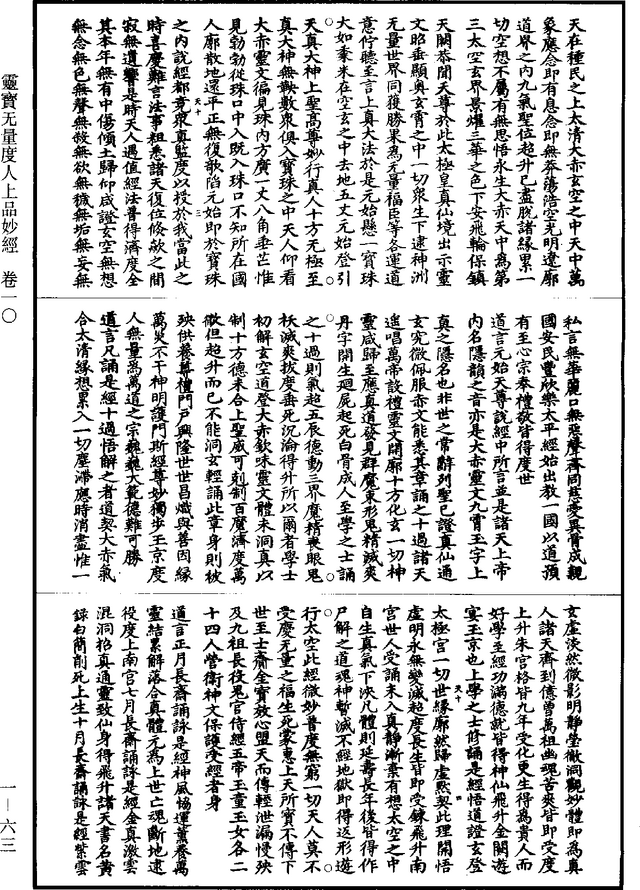 天在種民之上太清大赤玄空之中天中萬
象應念即有息念即無莽蕩浩空光明遼廓
道界之内九氣聖位超升已盡脫諸緣累一
切空想不屬有無思悟永生大赤天中為第
三太空玄界景耀三華之色下安飛輪保鎮
天關恭聞天尊於此太極皇真仙境出示靈
文昭垂顯奧玄霄之中一切衆生下逮神洲
无量世界同獲勝果為无量福臣等各運道
意佇聽至言上真大法於是元始懸一寶珠
大如黍米在空玄之中去地五丈元始登引
天真大神上聖高尊妙行真人十方无極至
真大神無鞅數衆俱入寶珠之中天人仰看
大赤靈文徧見珠内方廣一丈八角垂芒惟
見勃勃從珠口中入既入珠口不知所在國
人廓散地還平正無復欹陷元始即於寶珠
之内說經都竟衆真監度以授於我當此之
時喜慶難言法事粗悉諸天復位倏歘之間
寂無遺響是時天人遇值經法普得濟度全
其本年無有中傷傾土歸仰咸證玄空無想
無念無色無聲無殺無欲無穢無垢無妄無
私言無華麗口無惡聲齊同慈愛異骨成親
國安民豐欣樂太平經始出教一國以道預
有至心宗奉禮敬皆得度世
道言元始天尊說經中所言並是諸天上帝
内名隱韻之音亦是大赤靈文九霄玉字上
真之隱名也非世之常辭列聖已證真仙通
玄究微佩服赤文能悉其章誦之十過諸天
遥唱萬帝設禮靈文開廓十方化玄一切神
靈咸歸至應真道發見群魔束形鬼精滅爽
丹字開生迴屍起死白骨成人至學之士誦
之十過則氣超五辰德動三界魔精喪眼鬼
祅滅爽拔度垂死沉淪得升所以爾者學士
初解玄空道登大赤欽味靈文體未洞真以
制十方德未合上聖威可剋制百魔濟度萬
微但超升而已不能洞玄輕誦此章身則被
殃供養尊禮門戶興隆世世昌熾與善因緣
萬災不干神明護門斯經尊妙獨步玉京度
人無量為萬道之宗巍巍大範德難可勝
道言凡誦是經十過悟解之者道契大赤氣
合太清緣想累入一切塵滯應時消盡惟一
玄虛淡然微影明靜瑩徹洞觀妙體即為真
人諸天齊到億曾萬祖幽魂苦爽皆即受度
上升朱宫格皆九年受化更生得為貴人而
好學至經功滿德就皆得神仙飛升金闕遊
宴玉京也上學之士修誦是經悟道證玄登
太極宫一切世緣廓然歸虛默契此理開悟
虛明永無變滅超度長生皆即受鍊飛升南
宫世人受誦未入真靜漸業有想太空之中
自生真氣下浹凡體則延壽長年後皆得作
尸解之道魂神暫滅不經地獄即得返形遊
行太空此經微妙普度無窮一切天人莫不
受慶无量之福生死蒙惠上天所寶不傳下
世至士齎金寶效心盟天而傳輕泄漏慢殃
及九祖長役鬼官侍經五帝玉童玉女各二
十四人營衛神文保護受經者身
道言正月長齋誦詠是經神風協運薰養萬
靈結累解落合真體元為上世亡魂斷地逮
役度上南宫七月長齋誦詠是經金真激雲
混洞招真通靈致仙身得飛升諸天書名黄
録白簡削死上生十月長齋誦詠是經紫雲
天十 三
天十 四
靈寶无量度人上品妙經 卷一〇
一—六三